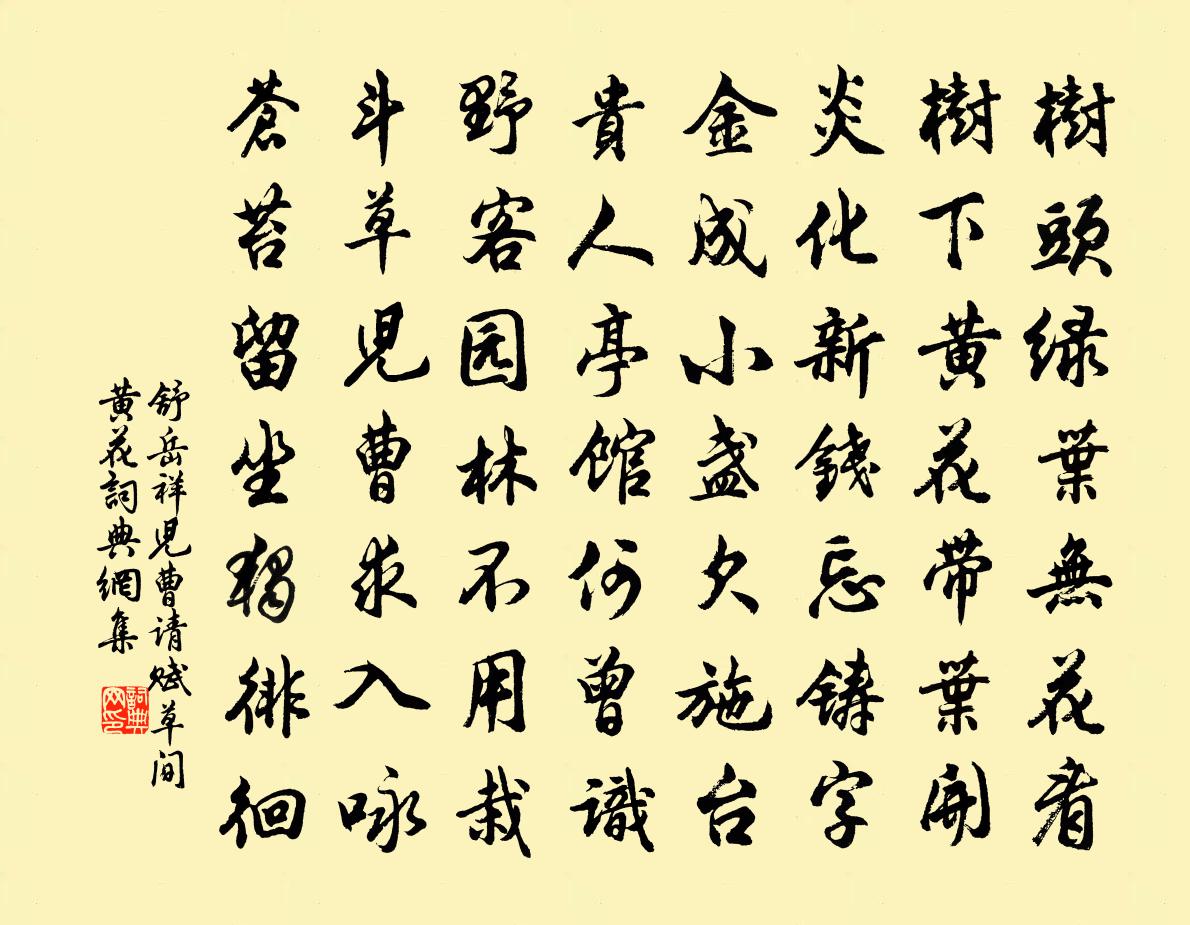 樹頭緑葉無花看
樹下黄花帶葉開
炎化新錢忘鑄字
金成小盏欠施台
貴人亭館何曾識
野客园林不用栽
斗草兒曹求入咏
蒼苔留坐獨徘徊
舒岳祥兒曹请赋草间
黄花詞典網集
詞典网印